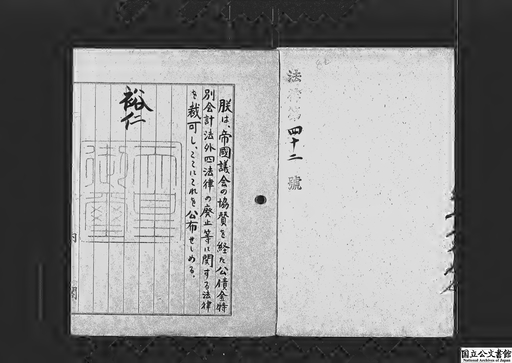 法律第四十二號
朕は、帝國議会の協賛を経た公債金特
別会計法外四法律の廃止等に関する法律
を裁可し、ここにこれを公布せしめる。
裕仁
天皇御璽
内閣
国立公文書館
National Archives of Japan